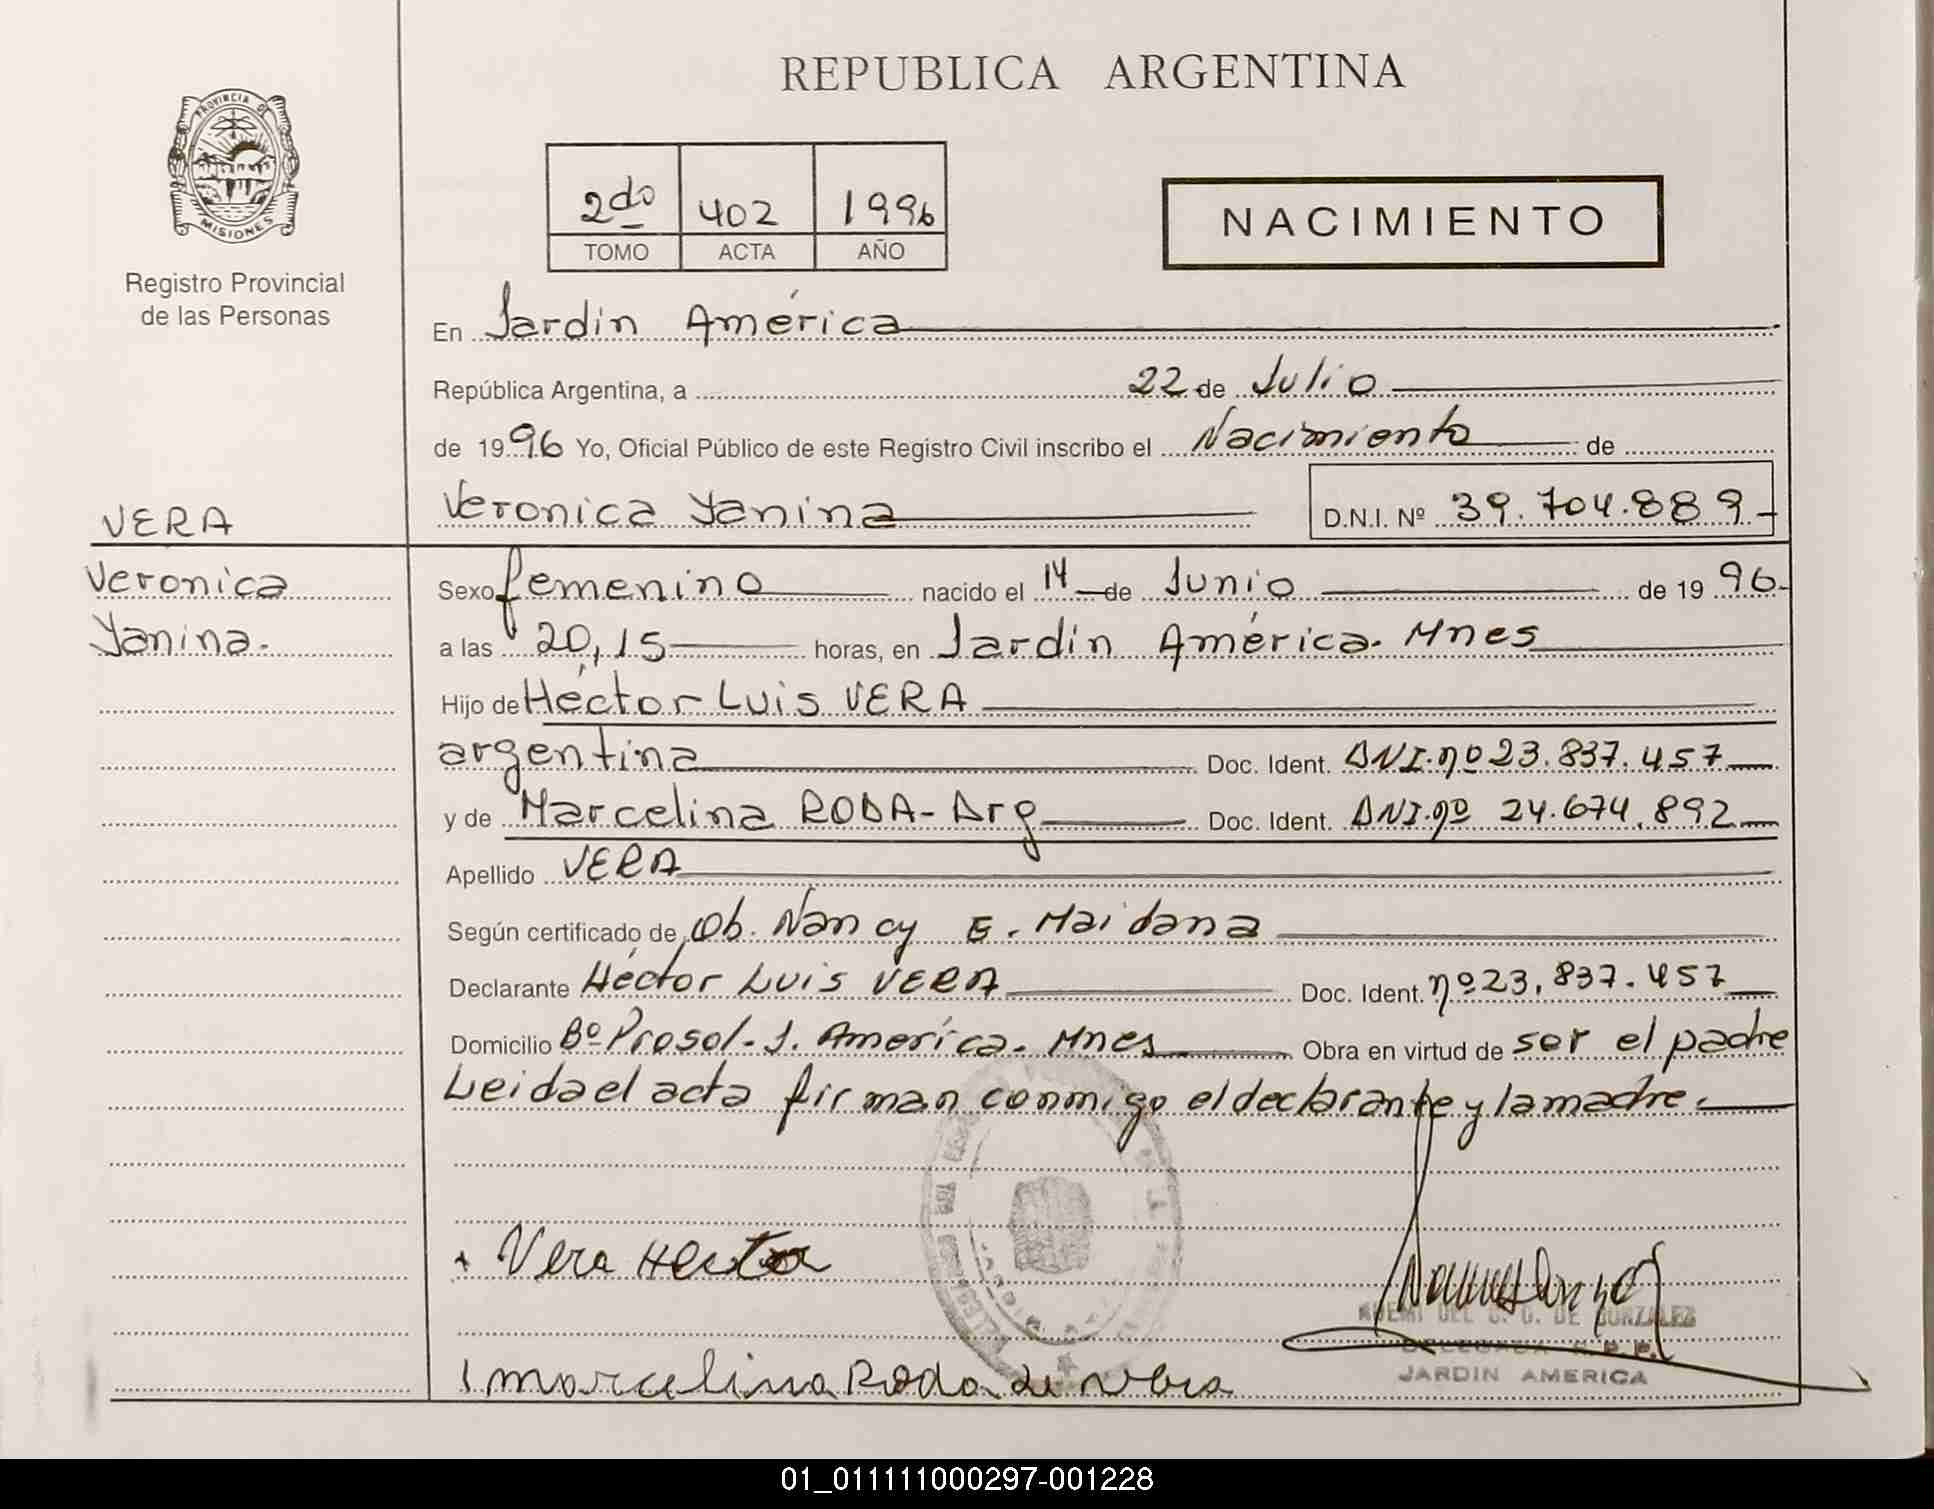 REPUBLICA ARGENTINA
PROVINCIA DE
MISIONES
Registro Provincial
de las Personas
2do 402 1996
TOMO ACTA AÑO
NACIMIENTO
En Jardín América
República Argentina, a 22 de Julio
de 1996 Yo, Oficial Público de este Registro Civil inscribo el Nacimiento de
Veronica Yanina D.N.I. Nº 39.704.889
VERA
Veronica
Yanina.
Sexo femenino nacido el 14 de Junio de 1996
a las 20,15 horas, en Jardín América. Mnes
Hijo de Héctor Luis VERA
argentina Doc. Ident. DNI.nº 23.837.457
y de Marcelina RODA - Arg Doc. Ident. DNI.nº 24.674.892
Apellido VERA
Según certificado de Ob. Nancy E. Maidana
Declarante Héctor Luis VERA Doc. Ident. nº 23.837.457
Domicilio Bº Prosol - J. América. Mnes Obra en virtud de ser el padre
Leida el acta firman conmigo el declarante y la madre.
Vera Hector
DE GONZALEZ
DELEGADA R.P.P.
JARDIN AMERICA
Marcelina Roda de Vera
01_011111000297-001228